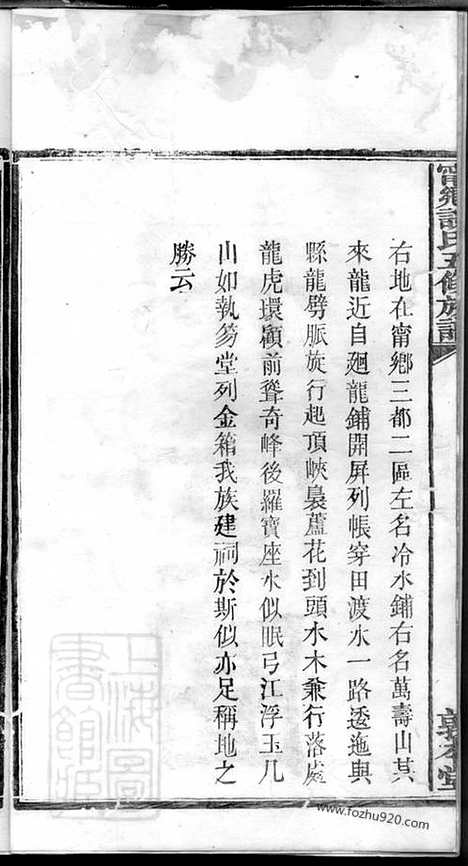 甯鄉許氏五修族譜
右地在甯鄉三都二區左名冷水鋪右名萬壽山其
來龍近自廻龍鋪開屏列帳穿田渡水一路透迤與
縣龍劈脈旋行起頂峽裊蘆花到頭水木兼行落處
龍虎環顧前聳奇峰後羅寶座水似眠弓江浮玉几
山如執笏堂列金箱我族建祠於斯似亦足稱地之
勝云
敦本堂
上海圖書館藏
www.fozhu920.com